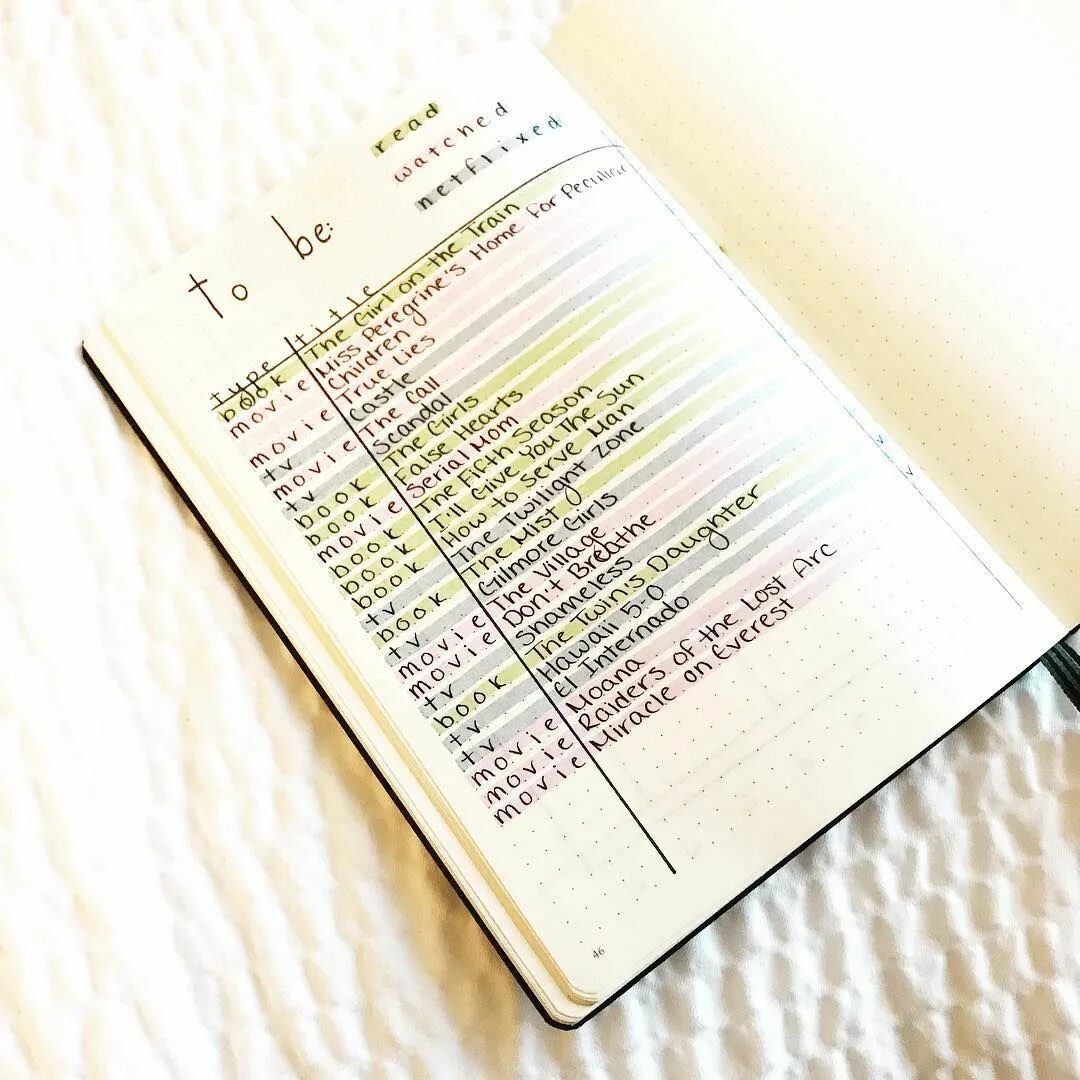 to be:
read
watched
netflixed
type title
book The Girl on the Train
movie Miss Peregrine's Home For Peculiar
Children
movie True Lies
tv Castle
movie The Call
tv Scandal
book The Girls
book False Hearts
movie Serial Mom
book The Fifth Season
book I'll Give You The Sun
book How to Serve Man
tv The Twilight Zone
book The Mist
tv Gilmore Girls
movie The Village
movie Don't Breathe
tv Shameless
book The Twin's Daughter
tv Hawaii 5-0
tv El Internado
movie Moana
movie Raiders of the Lost Arc
movie Miracle on Everest
46